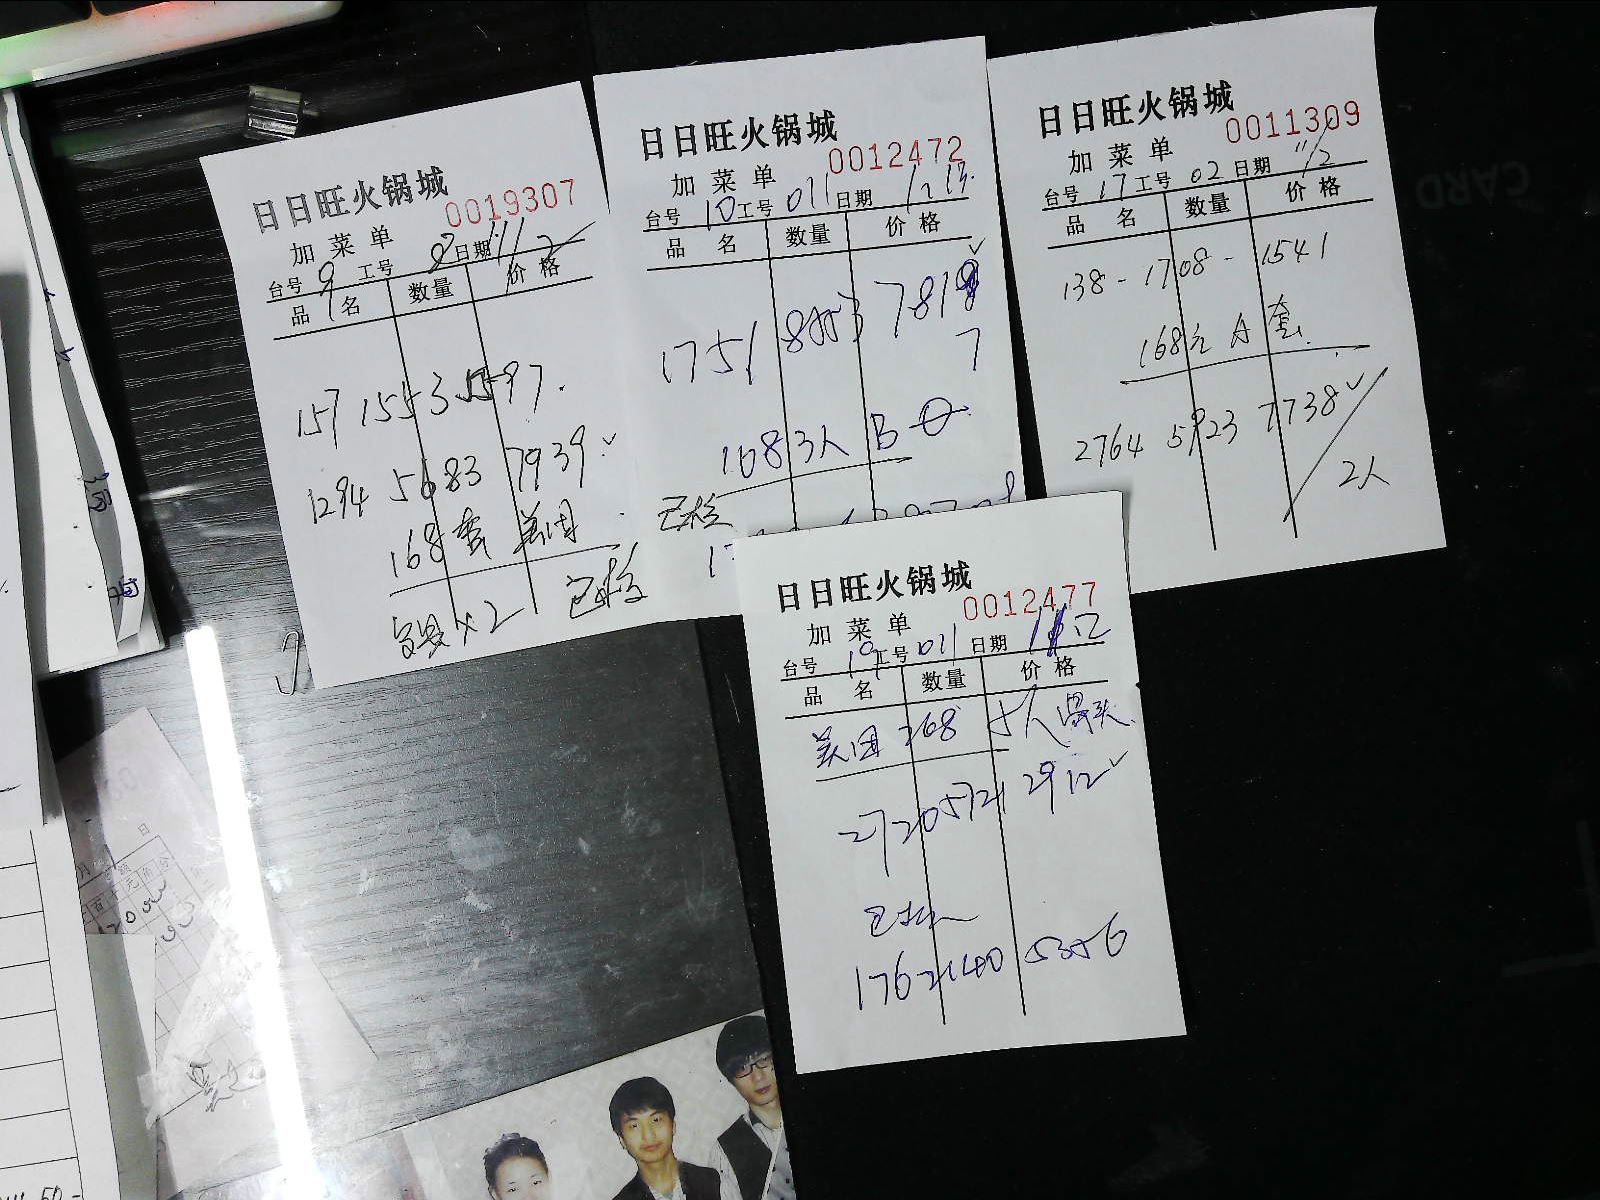 日日旺火锅城
0019307
加菜单
台号 9 工号 日期 11/2
品名 数量 价格
157 1553 1597.
1294 5683 7939 ✓
168套 美团
已核
日日旺火锅城
0012472
加菜单
台号 10 工号 011 日期
品名 数量 价格
1751 8053 7819
7
168 3人 B
已核
日日旺火锅城
0011309
加菜单
台号 17 工号 02 日期 11/2
品名 数量 价格
138-1708-1541
168元A套.
2764 5923 7738 ✓
2人
日日旺火锅城
0012477
加菜单
台号 19 工号 011 日期
品名 数量 价格
美团 268 5人
2720 5721 2912 ✓
1762 1440 5356
CARD